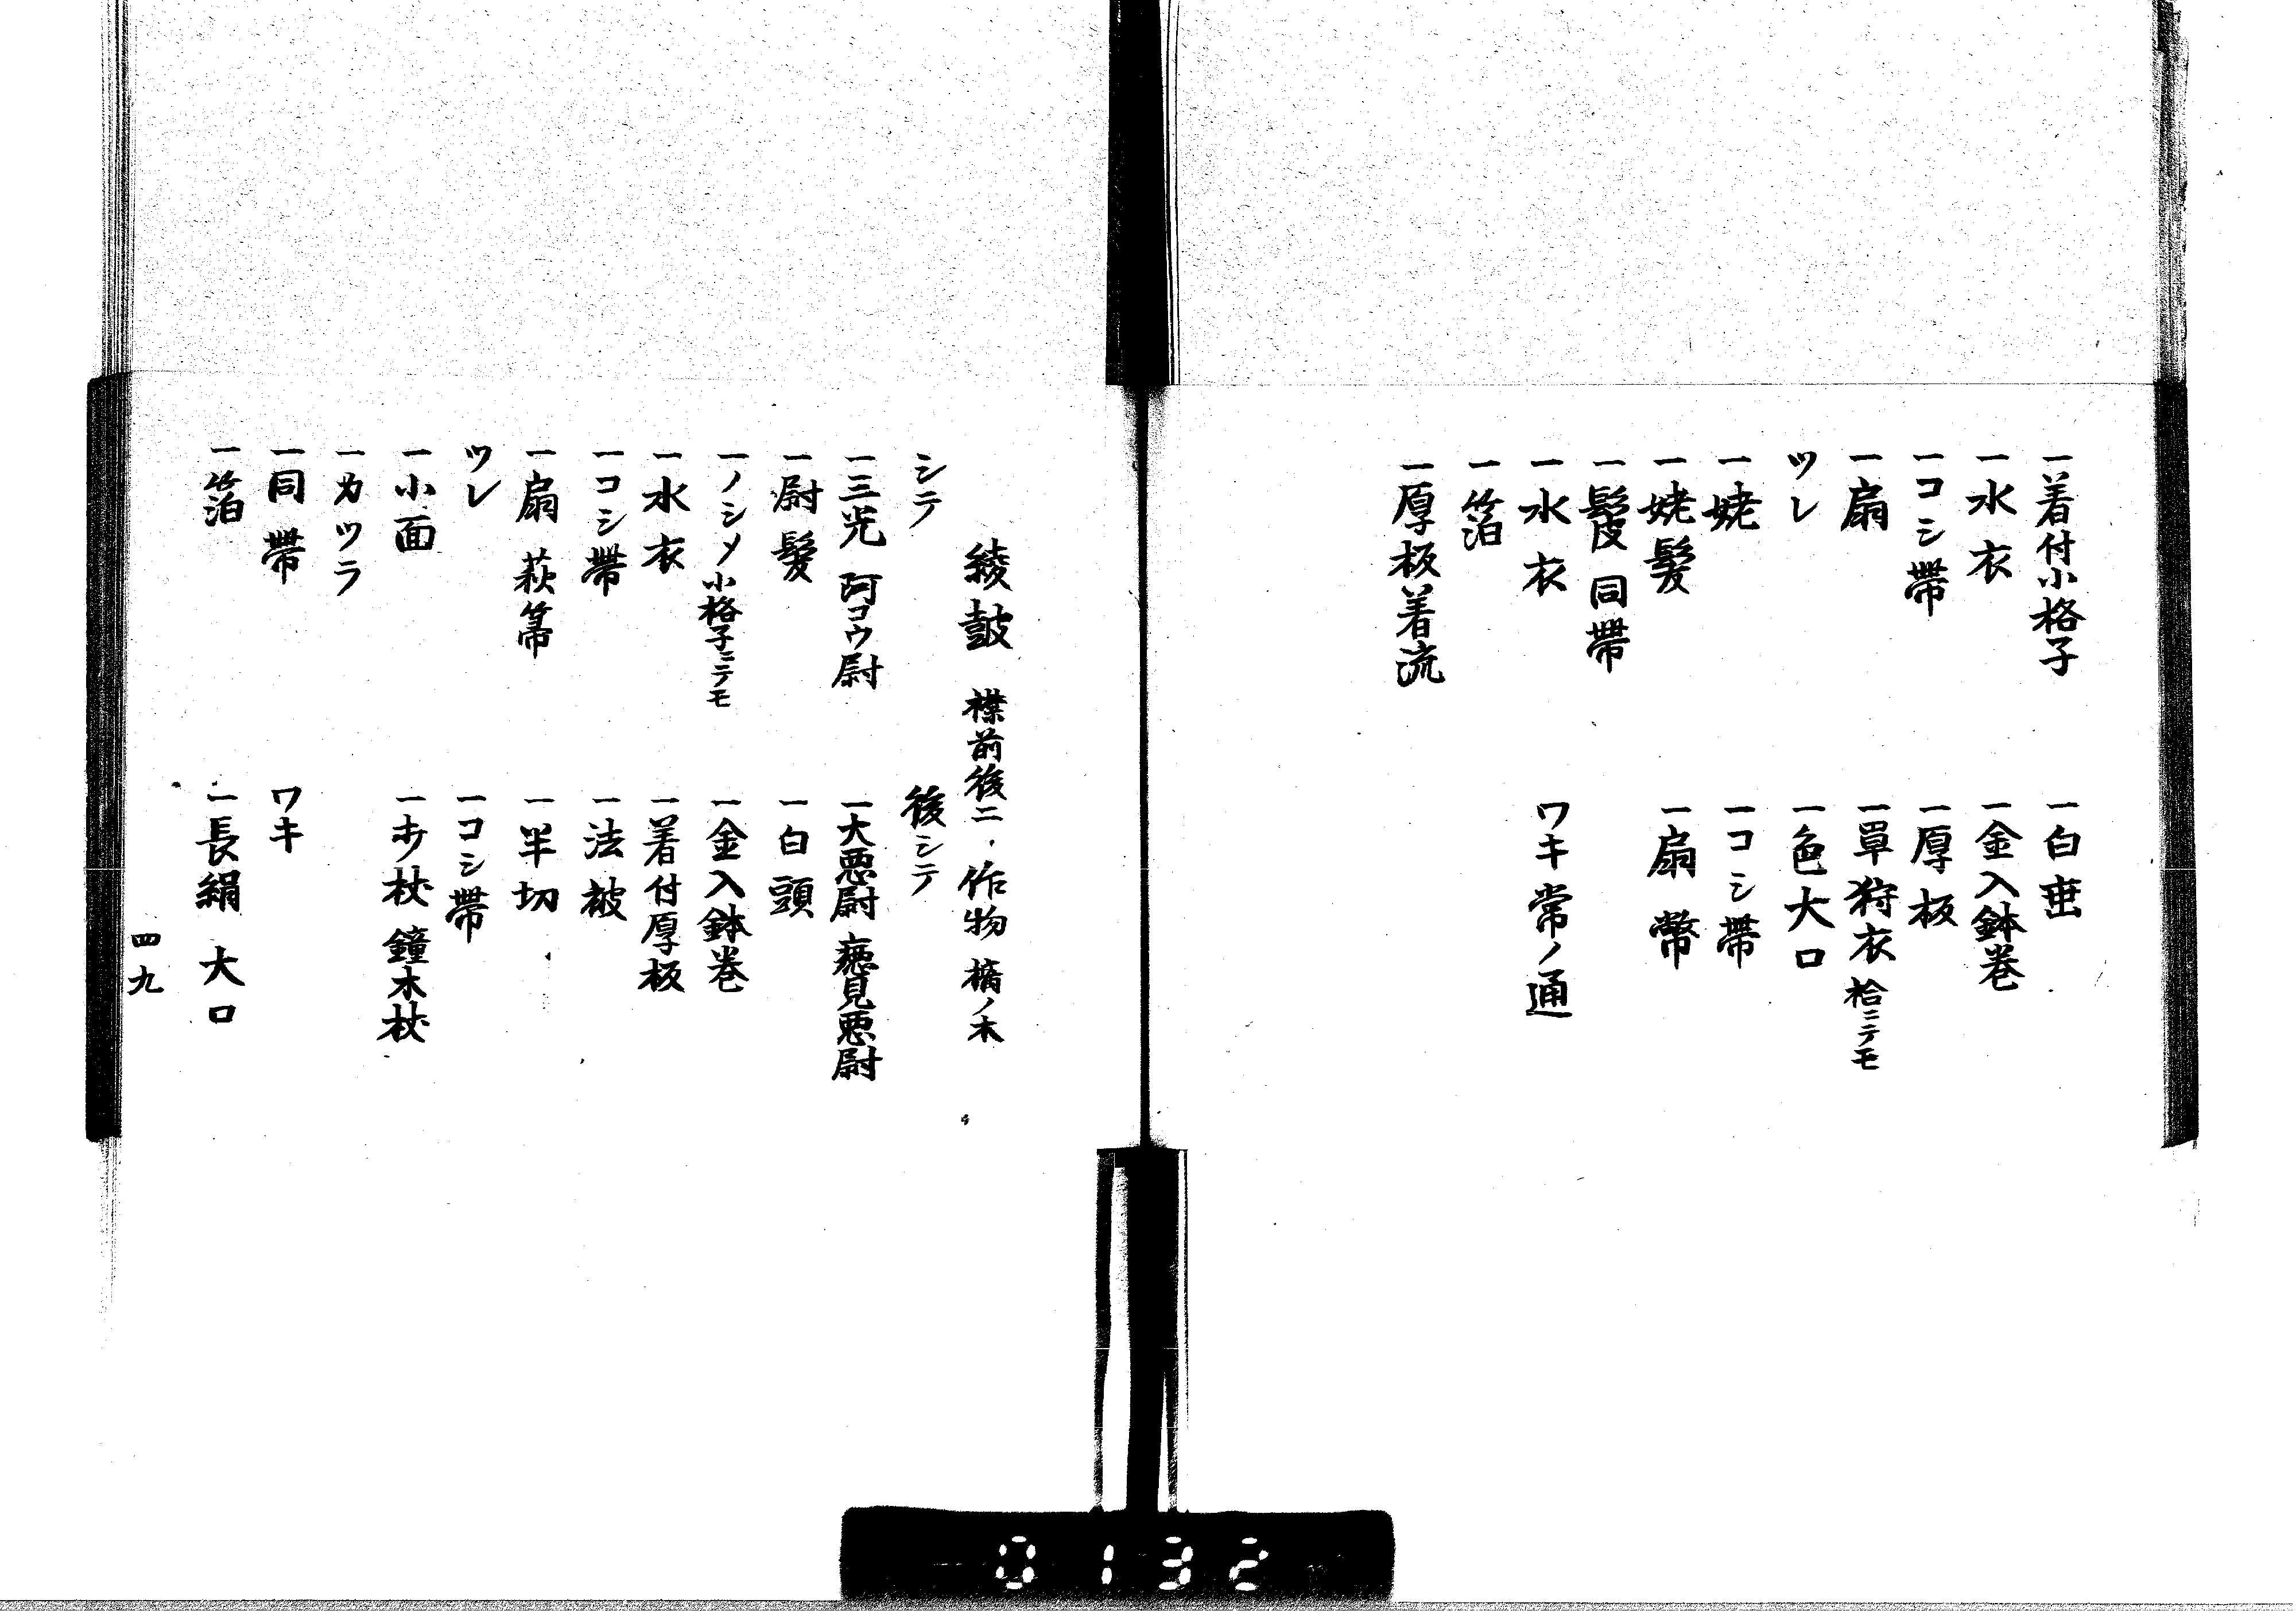 一着付小格子
一水衣
一コシ帶
一扇
ツレ
一姥
一姥髪
一鬘 同帶
一水衣
一箔
一厚板着流
一白垂
一金入鉢巻
一厚板
一單狩衣 袷ニテモ
一色大口
一コシ帶
一扇 幣
ワキ常ノ通
綾鼓 襟前後二 作物 橋ノ木
シテ
一三光 阿コウ尉
一尉髪
一ノシメ小格子ニテモ
一水衣
一コシ帶
一扇 萩箒
ツレ
一小面
一カツラ
一同帶
一箔
後シテ
一大悪尉 癋見悪尉
一白頭
一金入鉢巻
一着付厚板
一法被
一半切
一コシ帶
一杖 鐘木杖
ワキ
一長絹 大口
四九
0132